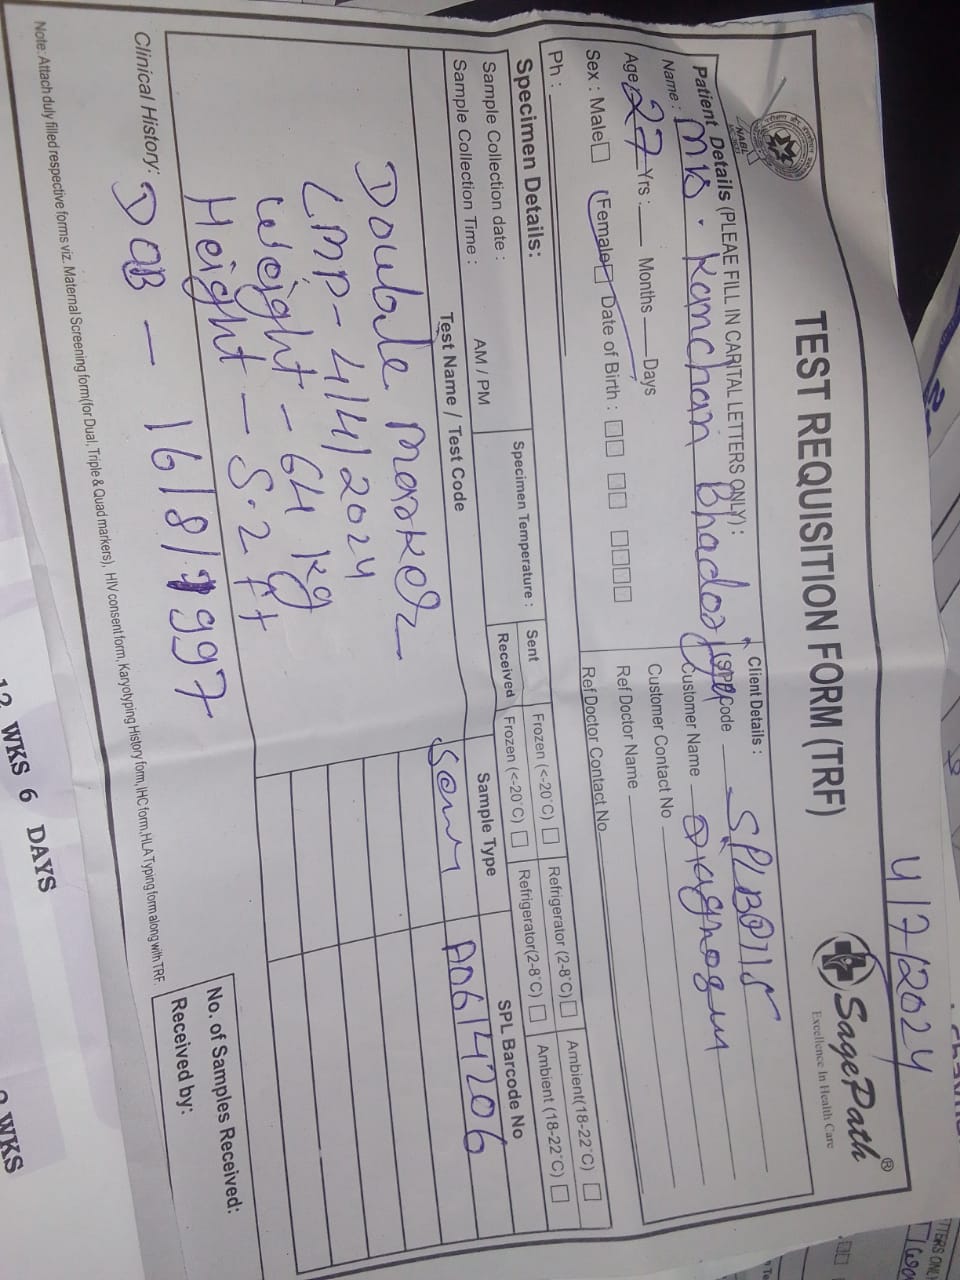 4/7/2024
SagePath®
Excellence In Health Care
NABL
TEST REQUISITION FORM (TRF)
Patient Details (PLEAE FILL IN CARITAL LETTERS ONLY):
Name : Mrs. Kamchan Bhadoriya
Age 27 Yrs : Months Days
Sex : Male Female Date of Birth :
Ph :
Client Details :
SPL Code SPLB0115
Customer Name Diagnogem
Customer Contact No
Ref Doctor Name
Ref Doctor Contact No
Specimen Details:
Sample Collection date :
Sample Collection Time : AM / PM
Specimen Temperature :
Sent Frozen (<-20°C) Refrigerator (2-8°C) Ambient(18-22°C)
Received Frozen (<-20°C) Refrigerator(2-8°C) Ambient (18-22°C)
Test Name / Test Code Sample Type SPL Barcode No
Double Marker Serum A0614206
LMP- 4/4/2024
Weight - 64 kg
Height - 5.2 ft
Clinical History: DOB - 16/8/1997
No. of Samples Received:
Received by:
Note: Attach duly filled respective forms viz. Maternal Screening form(for Dual, Triple & Quad markers), HIV consent form, Karyotyping History form, IHC form, HLA Typing form along with TRF.
12 WKS 6 DAYS
WKS